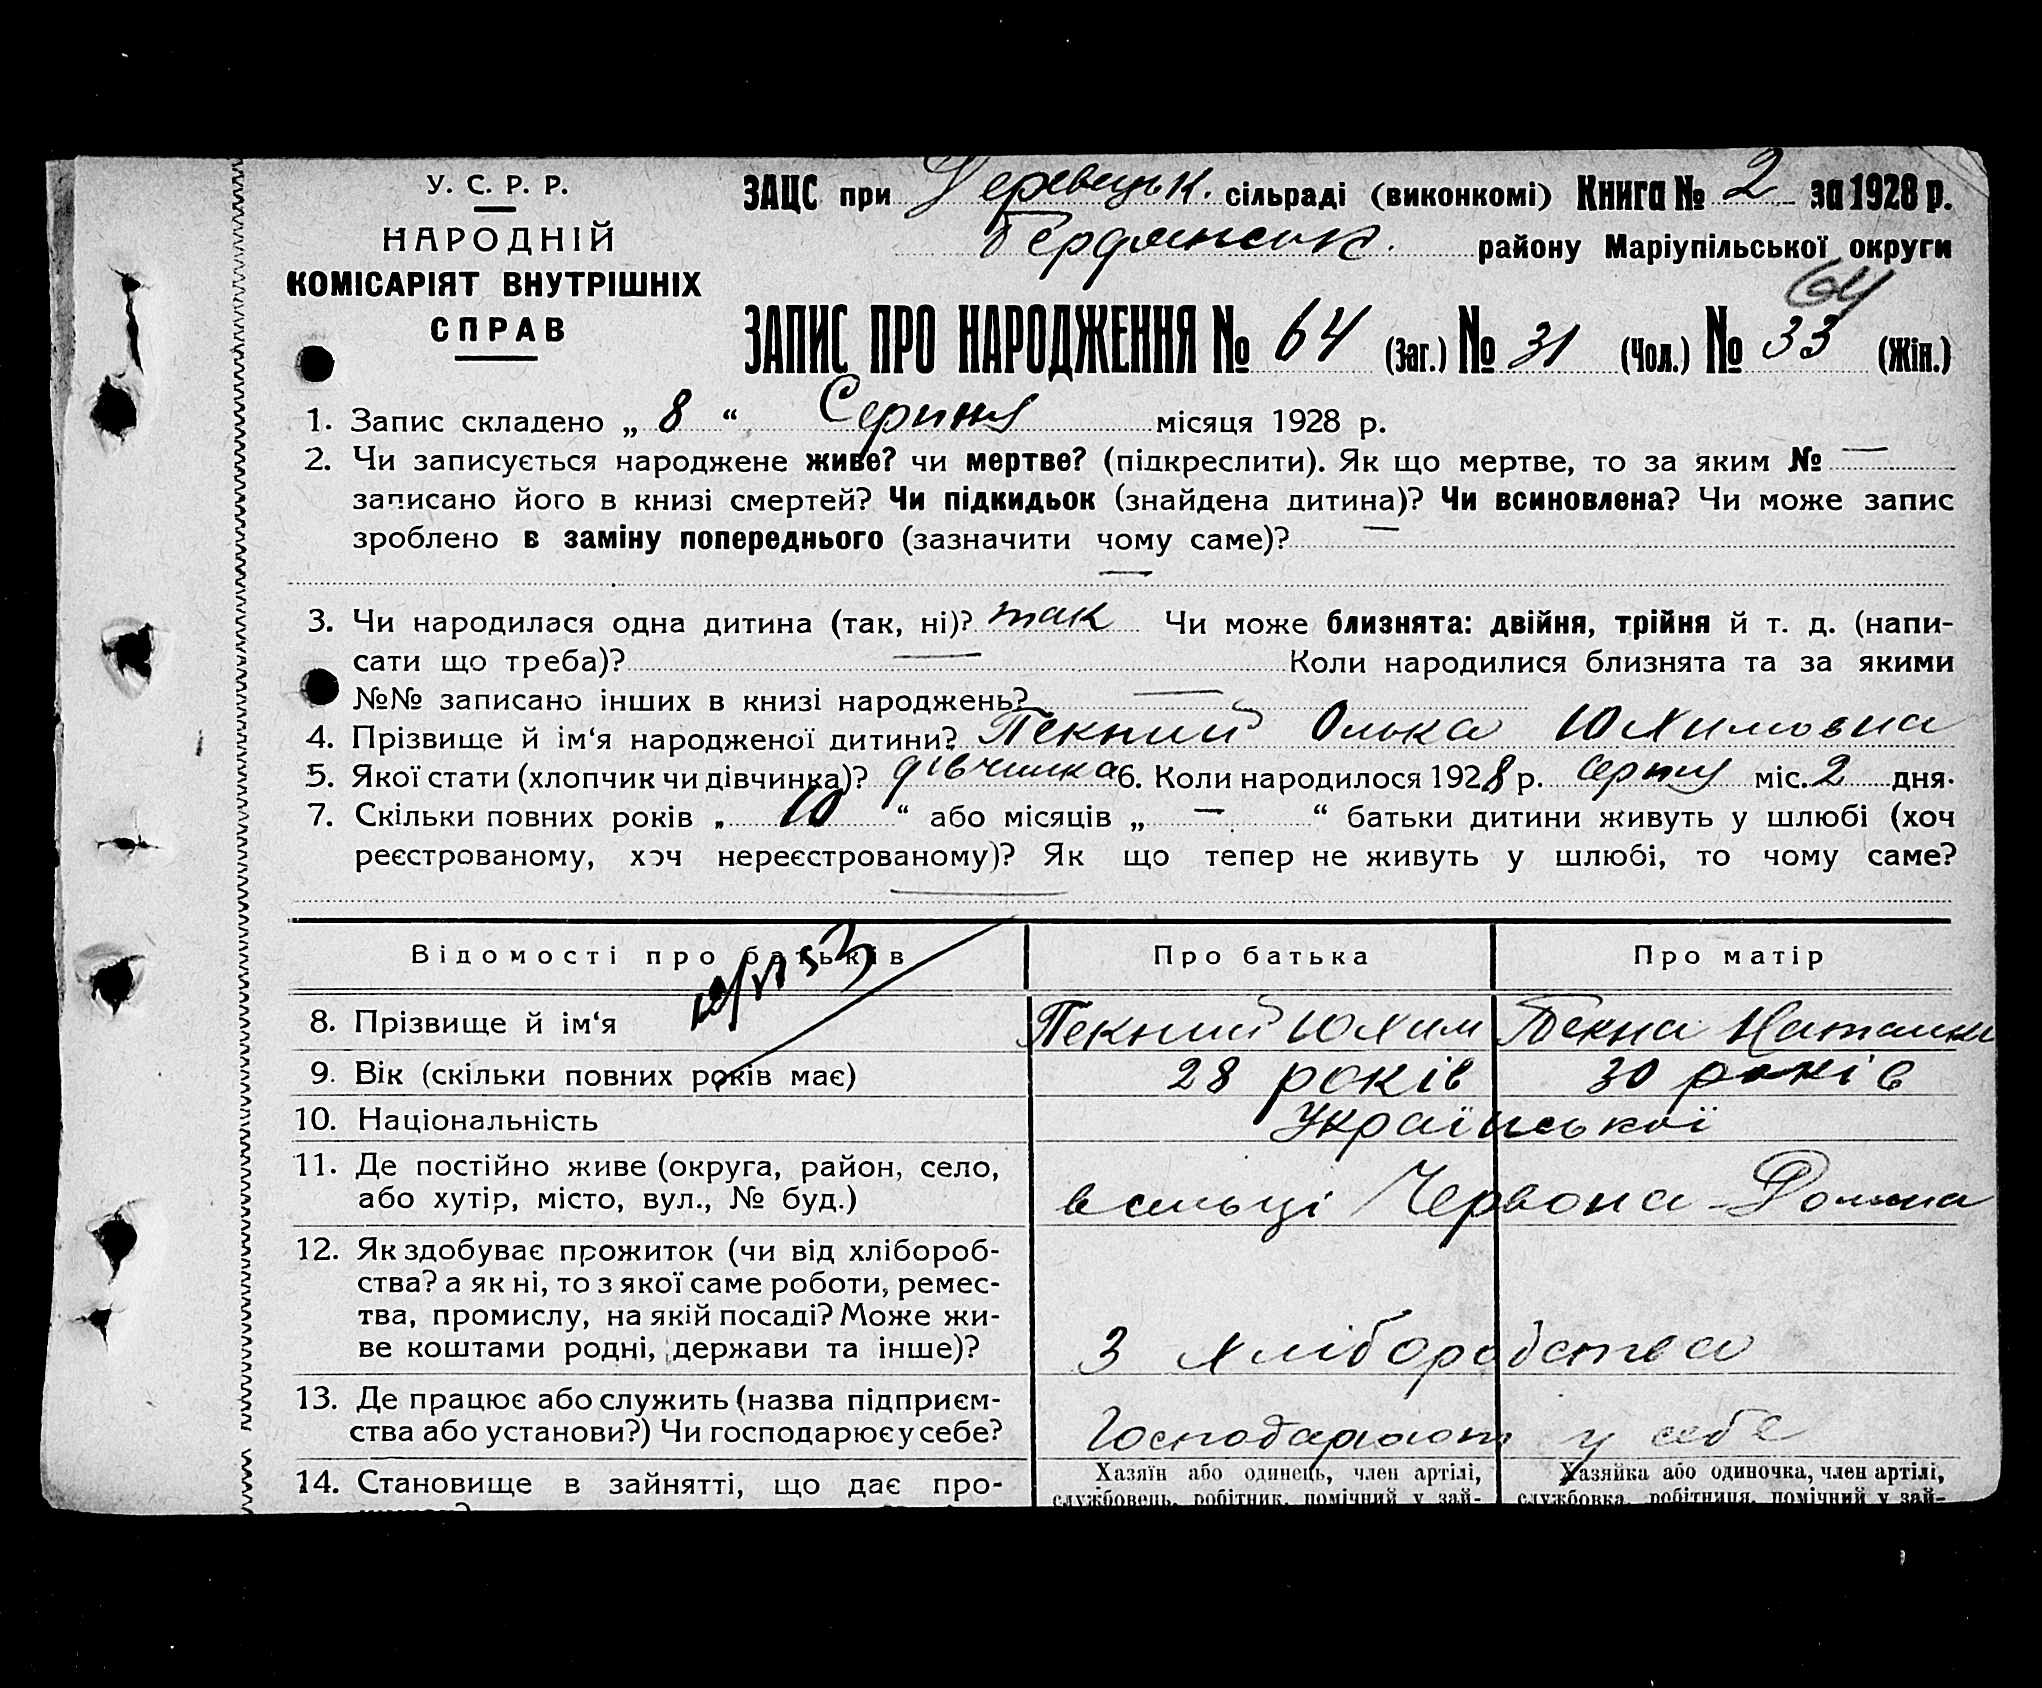 У. С. Р. Р.
НАРОДНІЙ
КОМІСАРІЯТ ВНУТРІШНІХ
СПРАВ
ЗАЦС при сільраді (виконкомі) Книга № 2 за 1928 р.
Бердянськ. району Маріупільської округи
64
ЗАПИС ПРО НАРОДЖЕННЯ № 64 (Заг.) № 31 (Чол.) № 33 (Жін.)
1. Запис складено „ 8 “ Серпня місяця 1928 р.
2. Чи записується народжене живе? чи мертве? (підкреслити). Як що мертве, то за яким № —
записано його в книзі смертей? Чи підкидьок (знайдена дитина)? Чи всиновлена? Чи може запис
зроблено в заміну попереднього (зазначити чому саме)? —
—
3. Чи народилася одна дитина (так, ні)? так Чи може близнята: двійня, трійня й т. д. (напи-
сати що треба)? — Коли народилися близнята та за якими
№№ записано інших в книзі народжень? —
4. Прізвище й ім‘я народженої дитини? Пекний Олька Юхимовна
5. Якої стати (хлопчик чи дівчинка)? дівчинка 6. Коли народилося 1928 р. серпня міс. 2 дня.
7. Скільки повних років „ 10 “ або місяців „ — “ батьки дитини живуть у шлюбі (хоч
реєстрованому, хоч нереєстрованому)? Як що тепер не живуть у шлюбі, то чому саме?
—
Відомості про батьків Про батька Про матір
8. Прізвище й ім‘я Пекний Юхим Пекна Наталка
9. Вік (скільки повних років має) 28 років 30 років
10. Національність Української
11. Де постійно живе (округа, район, село,
або хутір, місто, вул., № буд.) в сельці Червона-Долина
12. Як здобуває прожиток (чи від хлібороб-
ства? а як ні, то з якої саме роботи, ремес-
тва, промислу, на якій посаді? Може жи-
ве коштами родні, держави та інше)? З хліборобства
13. Де працює або служить (назва підприєм-
ства або установи?) Чи господарює у себе? Господарюют у себе
14. Становище в зайнятті, що дає про- Хазяїн або одинець, член артілі, Хазяйка або одиночка, член артілі,
службовець, робітник, помічний у зай- службовка, робітниця, помічний у зай-